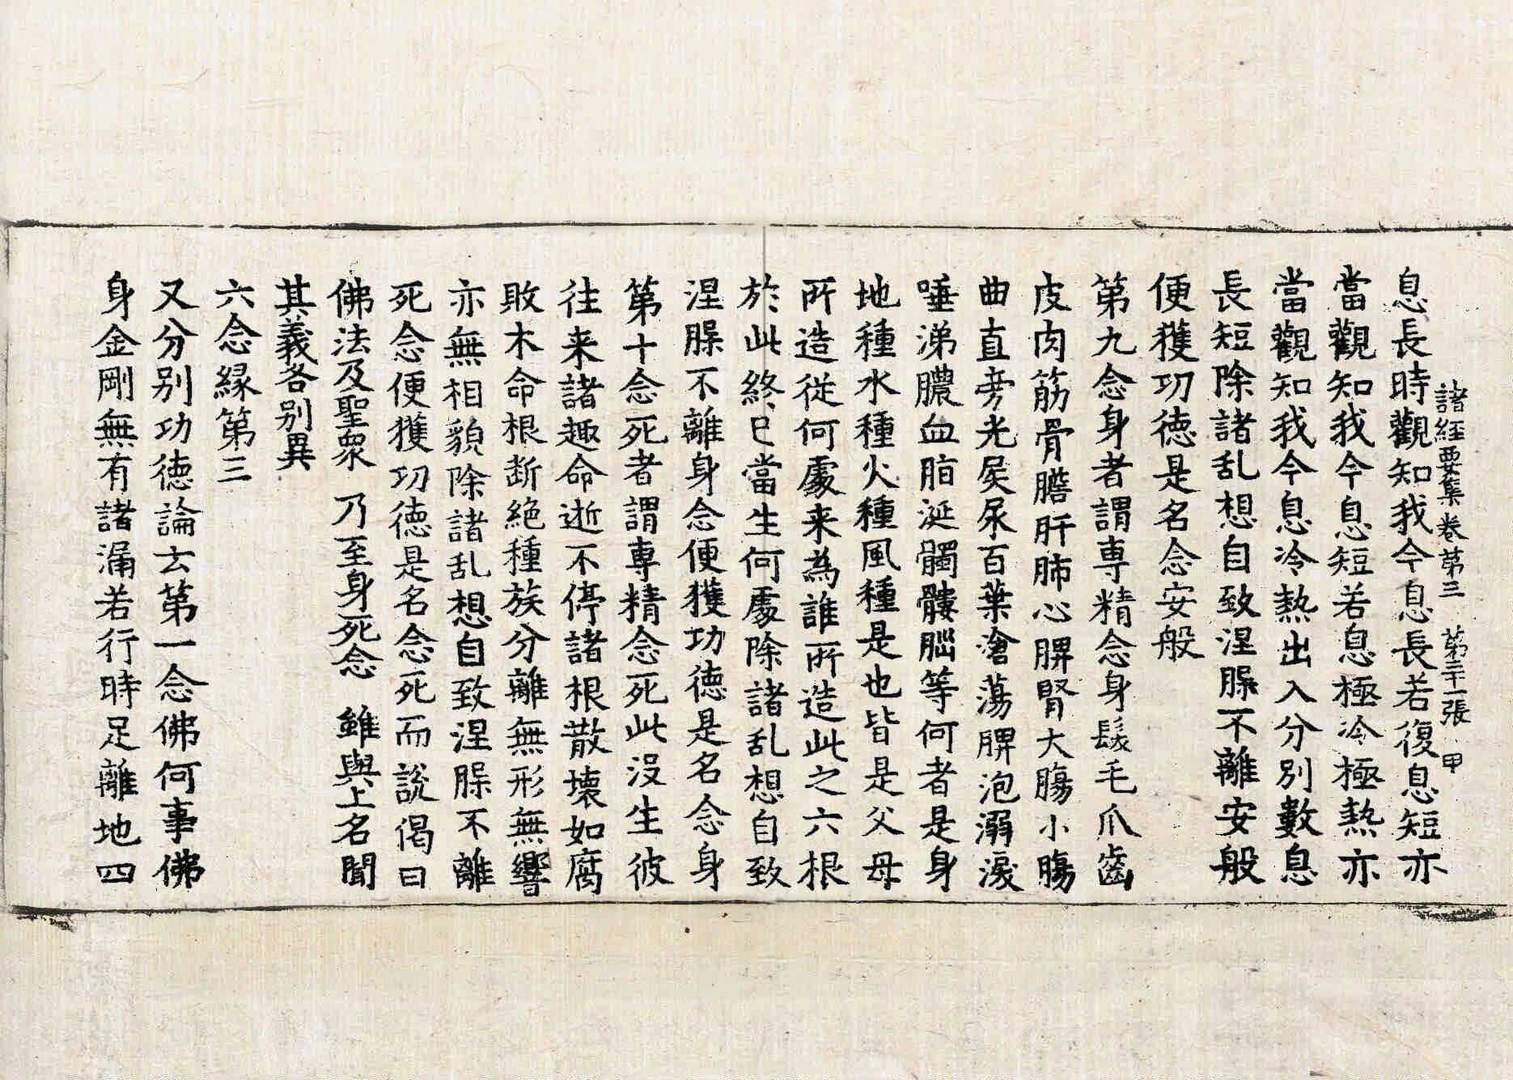 諸經要集卷第三　第二十一張　甲
息長時觀知我今息長若復息短亦
當觀知我今息短若息極冷極熱亦
當觀知我今息冷熱出入分別數息
長短除諸乱想自致涅槃不離安般
便獲功德是名念安般
第九念身者謂専精念身髮毛爪齒
皮肉筋骨膽肝肺心脾腎大膓小膓
曲直旁光屎尿百葉滄蕩脾泡溺淚
唾涕膿血脂涎髑髏腦等何者是身
地種水種火種風種是也皆是父母
所造従何處来為誰所造此之六根
於此終已當生何處除諸乱想自致
涅槃不離身念便獲功德是名念身
第十念死者謂専精念死此沒生彼
往来諸趣命逝不停諸根散壞如腐
敗木命根断絶種族分離無形無響
亦無相貌除諸乱想自致涅槃不離
死念便獲功德是名念死而說偈曰
佛法及聖衆　乃至身死念　雖與上名聞
其義各別異
六念縁第三
又分別功德論云第一念佛何事佛
身金剛無有諸漏若行時足離地四